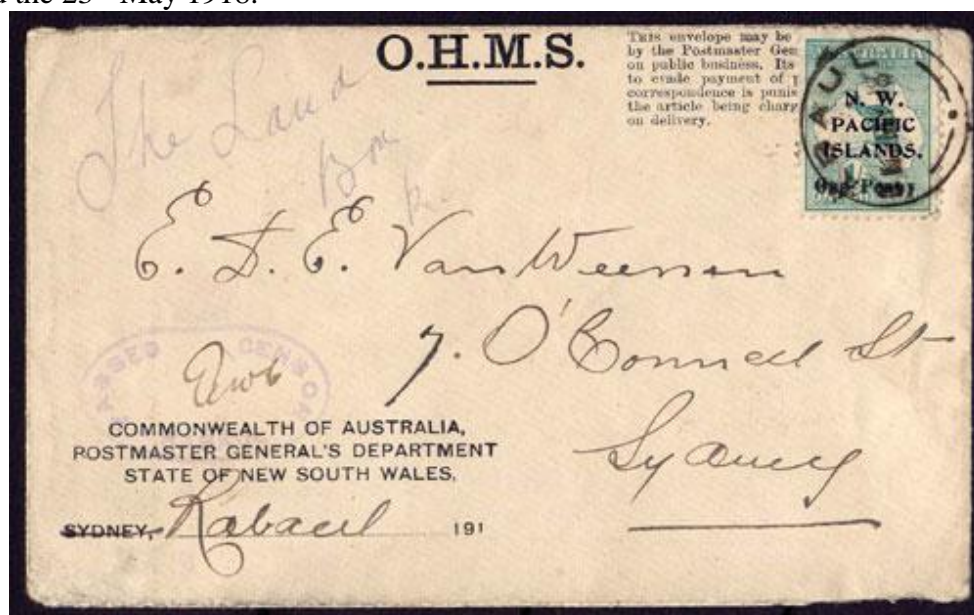 the 23 May 1918.
O.H.M.S.
THIS envelope may be
by the Postmaster Gen
on public business. Its
to evade payment of p
correspondence is punis
the article being charg
on delivery.
RABAUL
N. W.
PACIFIC
ISLANDS.
One Penny
The Land
E. D. E. Van Weenen
7. O'Connell St
Sydney
PASSED CENSOR
COMMONWEALTH OF AUSTRALIA,
POSTMASTER GENERAL'S DEPARTMENT
STATE OF NEW SOUTH WALES,
SYDNEY, Rabaul 191